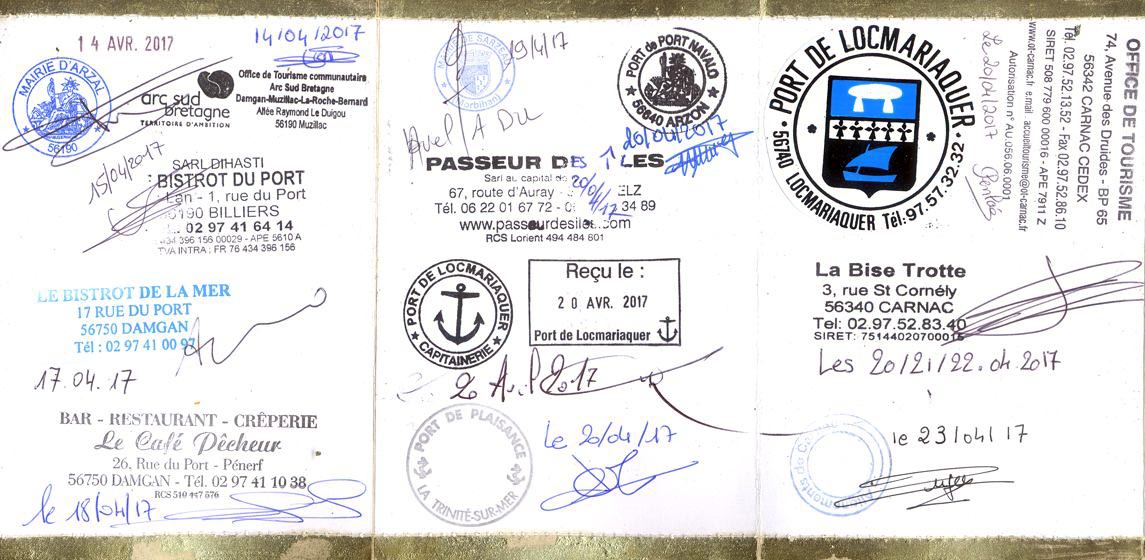 14 AVR. 2017
14/04/2017
MAIRIE D'ARZAL
56190
arc sud
bretagne
TERRITOIRE D'AMBITION
Office de Tourisme communautaire
Arc Sud Bretagne
Damgan-Muzillac-La-Roche-Bernard
Allée Raymond Le Duigou
56190 Muzillac
15/04/2017
SARL DIHASTI
BISTROT DU PORT
Lan - 1, rue du Port
56190 BILLIERS
02 97 41 64 14
434 396 156 00029 - APE 5610 A
TVA INTRA : FR 76 434 396 156
LE BISTROT DE LA MER
17 RUE DU PORT
56750 DAMGAN
Tél : 02 97 41 00 97
17.04.17
BAR - RESTAURANT - CRÊPERIE
Le Café Pêcheur
26, Rue du Port - Pénerf
56750 DAMGAN - Tél - 02 97 41 10 38
RCS 510 447 576
le 18/04/17
19/4/17
PORT de PORT NAVALO
56640 ARZON
20/04/2017
PASSEUR DES ILES
Sarl au capital de
67, route d'Auray -
ELZ
Tél. 06 22 01 67 72 -
34 89
www.passeurdesiles.com
RCS Lorient 494 484 601
20/04/17
PORT DE LOCMARIAQUER
CAPITAINERIE
Reçu le :
20 AVR. 2017
Port de Locmariaquer
20 Avril 2017
PORT DE PLAISANCE
LA TRINITÉ-SUR-MER
le 20/04/17
PORT DE LOCMARIAQUER
56740 LOCMARIAQUER Tél.97.57.32.32
OFFICE DE TOURISME
74, Avenue des Druides - BP 65
56342 CARNAC CEDEX
Tél. 02.97.52.13.52 - Fax 02.97.52.86.10
SIRET 508 779 600 00016 - APE 7911 Z
www.ot-carnac.fr e.mail : accueiltourisme@ot-carnac.fr
Autorisation n° AU.056.06.0001
Le 20/04/2017
La Bise Trotte
3, rue St Cornély
56340 CARNAC
Tel: 02.97.52.83.40
SIRET:
Les 20/21/22.04.2017
le 23/04/17